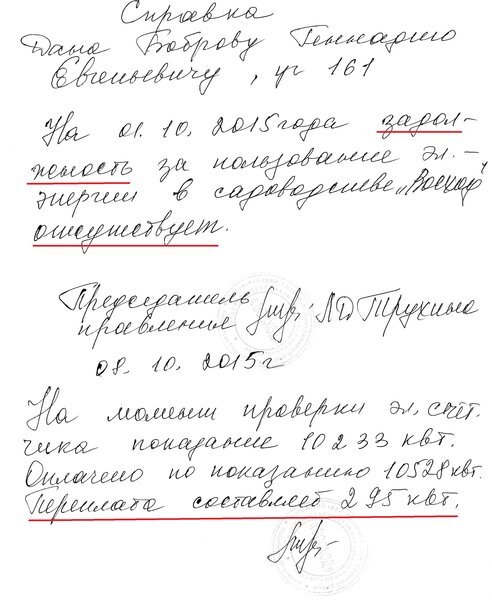 Справка
Дана Боброву Геннадию
Евгеньевичу, уч 161
На 01.10.2015 года задол-
женность за пользование эл.-
энергии в садоводстве „Восход"
отсутствует.
Председатель
правления ЛД Трухина
08.10.2015г
На момент проверки эл. счёт.
чика показание 10233 квт.
Оплачено по показанию 10528 квт.
Переплата составляет 295 квт.